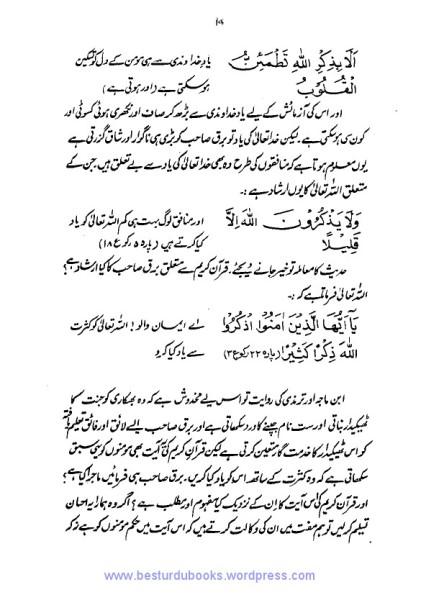 ۱۰۶
اَلَا بِذِکْرِ اللهِ تَطْمَئِنُّ یاد خداوندی سے ہی مؤمن کے دل کو تسکین
الْقُلُوْبُ ہو سکتی ہے (اور ہوتی ہے)
اور اس کی آزمائش کے لیے یاد خداوندی سے بڑھ کر صاف اور نکھری ہوئی کسوٹی اور
کون سی ہو سکتی ہے۔ لیکن خدا تعالیٰ کی یاد تو برق صاحب کو بڑی ہی ناگوار اور شاق گزرتی ہے
یوں معلوم ہوتا ہے کہ منافقوں کی طرح وہ بھی خدا تعالیٰ کی یاد سے بے تعلق ہیں جن کے
متعلق اللہ تعالیٰ کا یوں ارشاد ہے :۔
وَلَا یَذْکُرُوْنَ اللهَ اِلَّا اور منافق لوگ بہت ہی کم اللہ تعالیٰ کو یاد
قَلِیْلًا کیا کرتے ہیں (پارہ ۵ رکوع ۱۸)
حدیث کا معاملہ تو خیر جانے دیجئے۔ قرآن کریم سے متعلق برق صاحب کا کیا ارشاد ہے؟
اللہ تعالیٰ فرماتا ہے کہ :۔
یٰۤاَیُّهَا الَّذِیْنَ اٰمَنُوا اذْکُرُوا اے ایمان والو! اللہ تعالیٰ کو کثرت
اللهَ ذِکْرًا کَثِیْرًا (پارہ ۲۲ رکوع ۳) سے یاد کیا کرو
ابن ماجہ اور ترمذی کی روایت تو اس لیے مخدوش ہے کہ وہ بھکاری کو جنت کا
ٹھیکیدار بناتی اور ست نام جپنے کا درد سکھاتی ہے اور برق صاحب ایسے لائق اور فائق تعلیم یافتہ
کو اس ٹھیکیدار کا خدمت گار متعین کرتی ہے لیکن قرآن کریم کی آیت بھی مؤمنوں کو یہی سبق
سکھاتی ہے کہ وہ کثرت کے ساتھ اس کو یاد کیا کریں۔ برق صاحب ہی فرمائیں ماجرا کیا ہے؟
اور قرآن کریم کی اس آیت کا ان کے نزدیک کیا مفہوم اور مطلب ہے؟ اگر وہ ہمارا یہ احسان
تسلیم کر لیں تو ہم مفت میں ان کی وکالت کرتے ہیں کہ اس آیت میں حکم مؤمنوں کو ہے نہ کہ
www.besturdubooks.wordpress.com